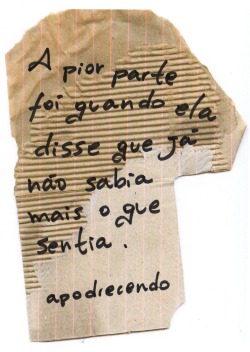 A pior parte
foi quando ela
disse que já
não sabia
mais o que
sentia.
apodrecendo